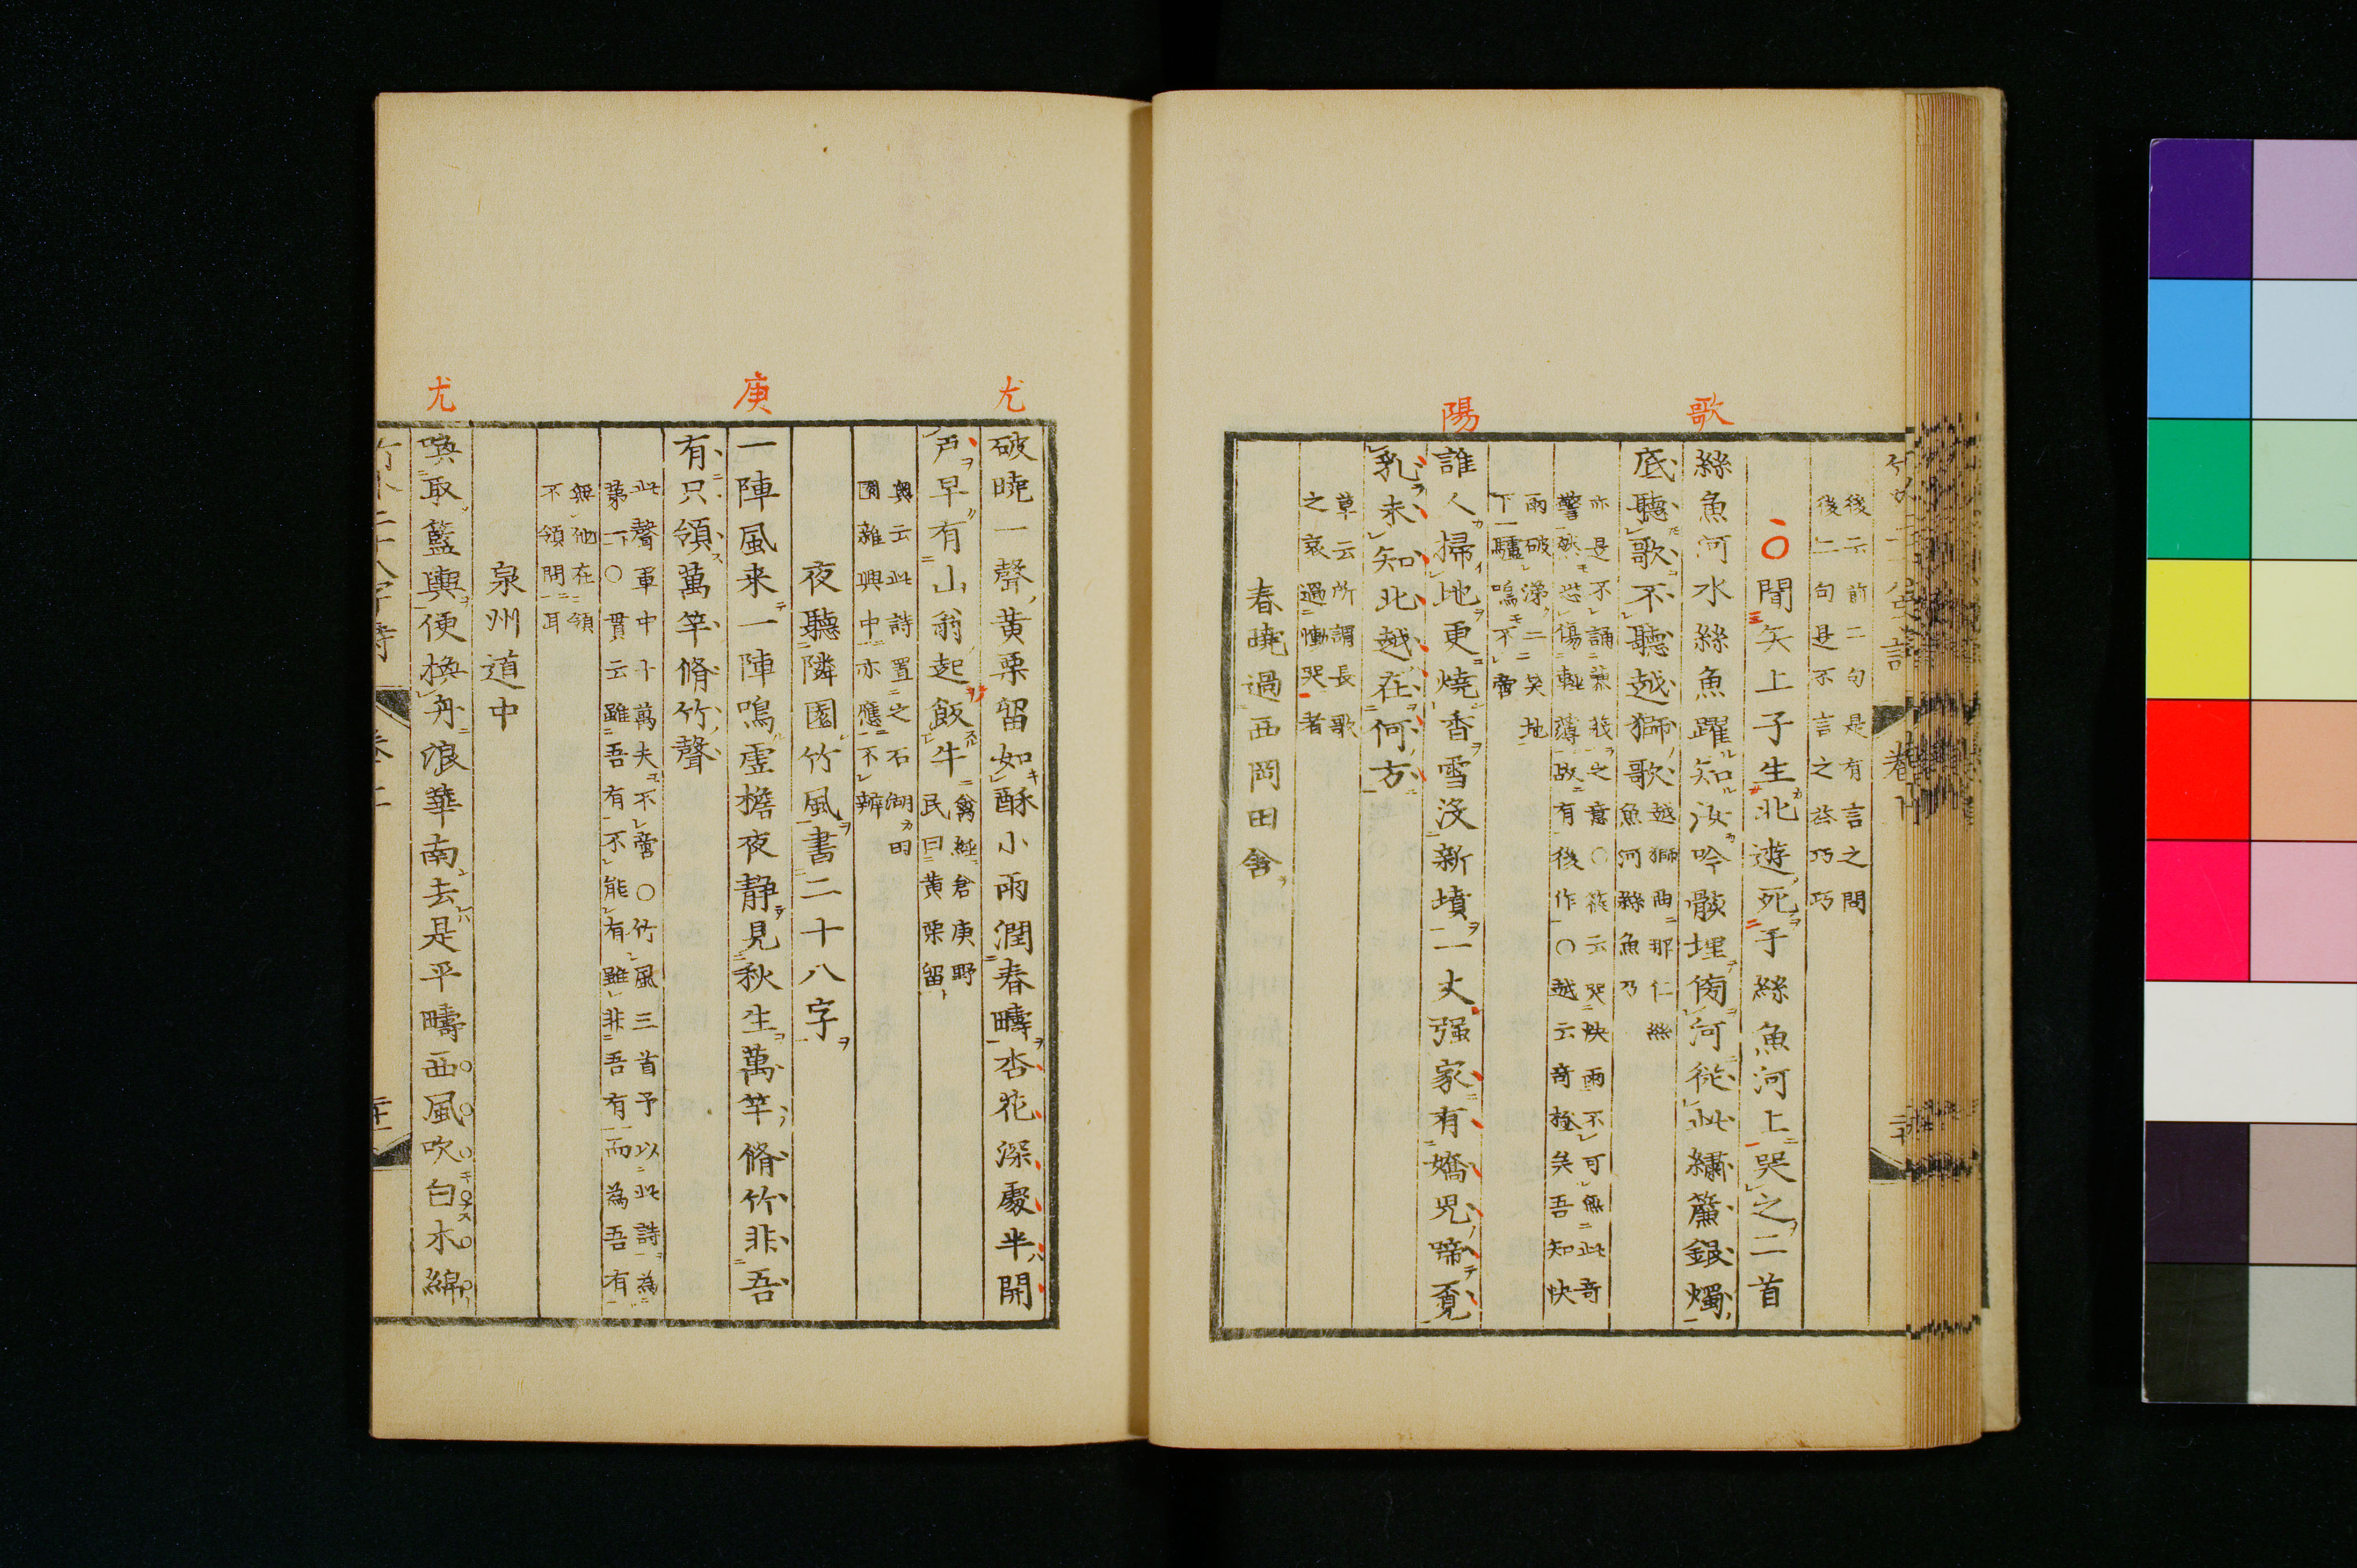 歌
陽
後云前二句是有言之問
後二句是不言之荅巧巧
○聞矢上子生北遊死于絲魚河上哭之二首
絲魚河水絲魚躍知汝吟骸埋傍河從此繡簾銀燭
底聽歌不聽越獅歌
越獅曲那仁絲
魚河絲魚乃
亦是不誦蒹葭之意○筱云哭快雨不可無此奇
警然恐傷輕薄故有後作○越云奇極矣吾知快
雨破涕二笑地
下一驢鳴不啻
誰人掃地更燒香雪沒新墳一丈强家有嬌兒啼覓
乳未知北越在何方
草云所謂長歌
之哀過慟哭者
春曉過西岡田舍
尤
庚
尤
破曉一聲黃栗留如酥小雨潤春疇杏花深處半開
戶早有山翁起飯牛
禽經倉庚野
民曰黃栗留
輿云此詩置之石湖田
園雜興中亦應不辨
夜聽隣園竹風書二十八字
一陣風来一陣鳴虛檐夜静見秋生萬竿脩竹非吾
有只領萬竿脩竹聲
此聲軍中十萬夫不啻○竹風三首予以此詩為
第一○貫云雖吾有不能有雖非吾有而為吾有
無他在領
不領間耳
泉州道中
喚取籃輿便換舟浪華南去是平疇西風吹白木綿